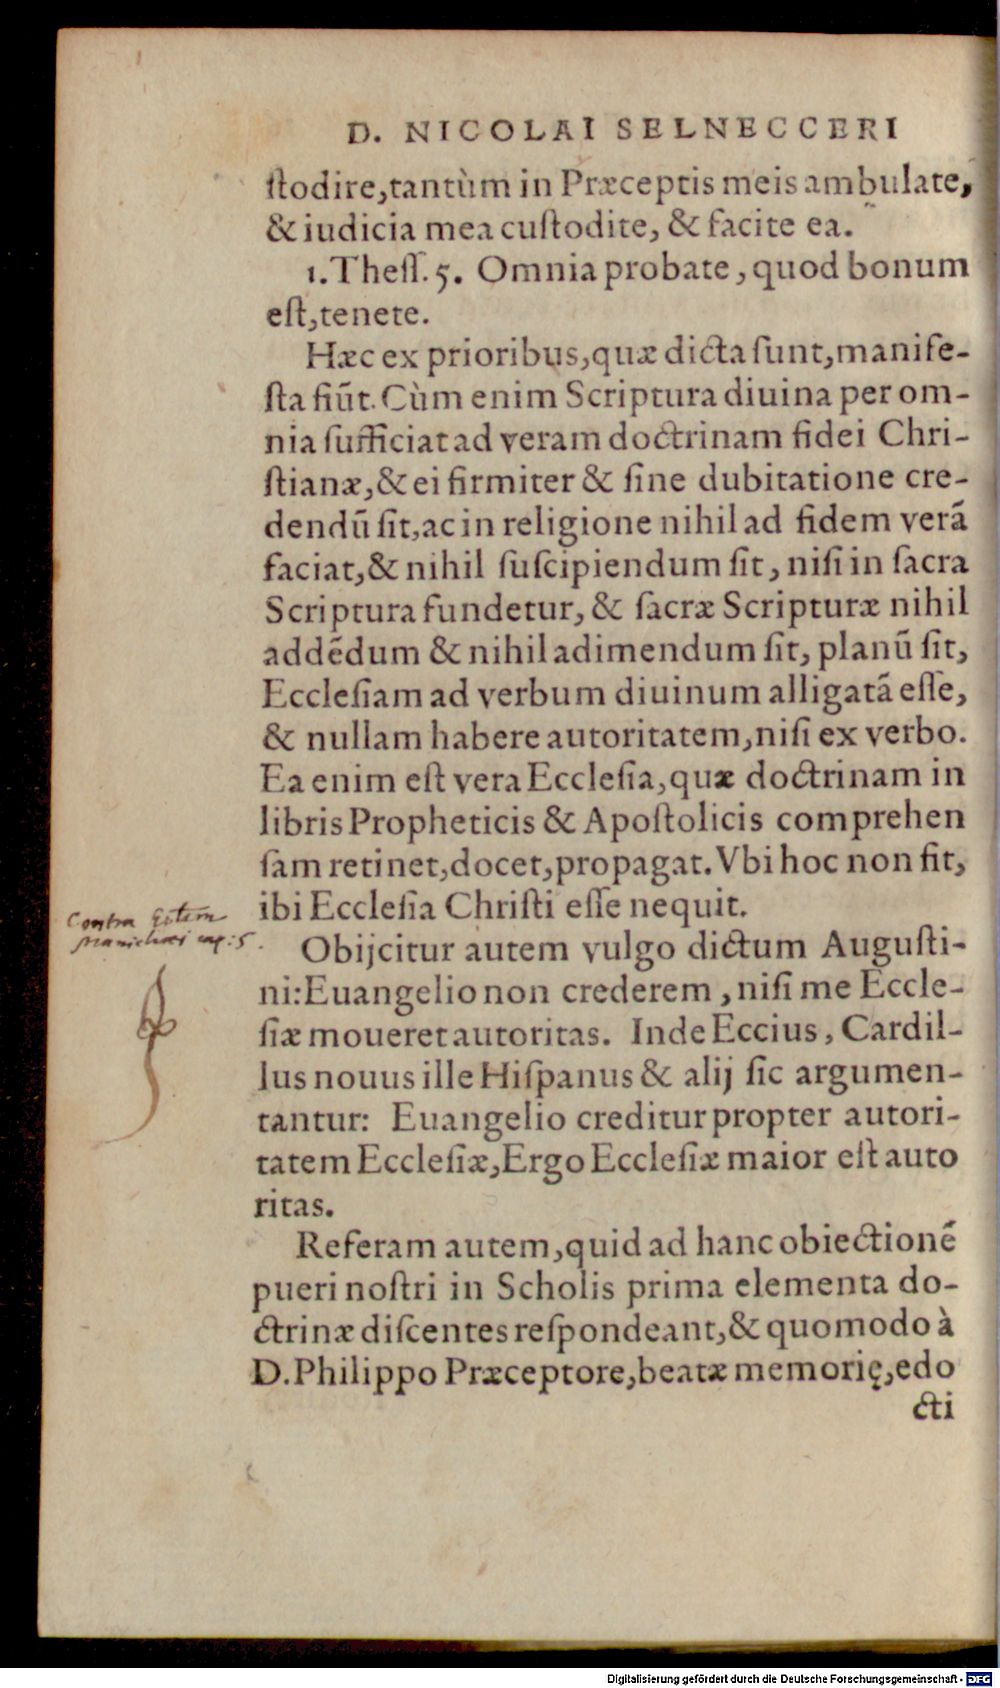 D. NICOLAI SELNECCERI
ſtodire,tantùm in Præceptis meis ambulate,
& iudicia mea cuſtodite, & facite ea.
1.Theſſ.5. Omnia probate, quod bonum
eſt,tenete.
Hæc ex prioribus,quæ dicta ſunt,manife-
ſta fiũt. Cùm enim Scriptura diuina per om-
nia ſufficiat ad veram doctrinam fidei Chri-
ſtianæ,& ei firmiter & ſine dubitatione cre-
dendũ ſit,ac in religione nihil ad fidem verã
faciat,& nihil ſuſcipiendum ſit, niſi in ſacra
Scriptura fundetur, & ſacræ Scripturæ nihil
addẽdum & nihil adimendum ſit, planũ ſit,
Eccleſiam ad verbum diuinum alligatã eſſe,
& nullam habere autoritatem,niſi ex verbo.
Ea enim eſt vera Eccleſia,quæ doctrinam in
libris Propheticis & Apoſtolicis comprehen
ſam retinet,docet,propagat. Vbi hoc non fit,
ibi Eccleſia Chriſti eſſe nequit.
Contra Epistem
Manichaei cap: 5.
Obijcitur autem vulgo dictum Auguſti-
ni:Euangelio non crederem, niſi me Eccle-
ſiæ moueret autoritas. Inde Eccius, Cardil-
lus nouus ille Hiſpanus & alij ſic argumen-
tantur: Euangelio creditur propter autori-
tatem Eccleſiæ,Ergo Eccleſiæ maior eſt auto
ritas.
Referam autem,quid ad hanc obiectionẽ
pueri noſtri in Scholis prima elementa do-
ctrinæ diſcentes reſpondeant,& quomodo à
D.Philippo Præceptore,beatæ memorię,edo
cti
Digitalisierung gefördert durch die Deutsche Forschungsgemeinschaft - DFG